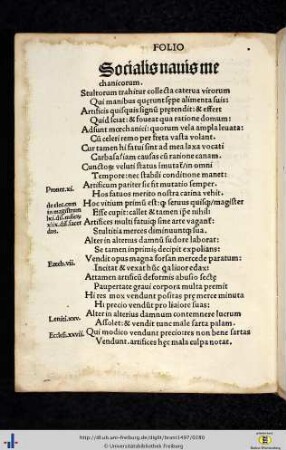 FOLIO
Socialis nauis me
chanicorum.
Stultorum trahitur collecta caterua virorum
Qui manibus quęrunt sępe alimenta suis:
Artificis quisquis signū prętendit: & effert
Quid sciat: & foueat qua ratione domum:
Adsunt mœchanici: quorum vela ampla leuata:
Cū celeri remo per freta vasta volant.
Cur tamen hi fatui sint ad mea laxa vocati
Carbasa: iam causas cū ratione canam.
Cunctoȝ veluti status imutat̄ in omni
Tempore: nec stabili conditione manet:
Prouer. xi.
Artificum pariter sic fit mutatio semper.
Hos fatuos merito nostra carina vehit.
Hoc vitium primū est: ꝙ seruus quisqȝ magister
Esse cupit: callet & tamen ipse nihil:
Artifices multi fatuiqȝ sine arte vagant̄:
Stultitia merces diminuuntqȝ sua.
Alter in alterius damnū sudore laborat:
Se tamen inprimis decipit expolians:
Ezech. vii.
Vendit opus magna forsan mercede paratum:
Incitat & vexat hūc
Attamen artificū deformis abusio sectę
Paupertate graui corpora multa premit
Hi res mox vendunt positas pre merce minuta
Hi precio vendūt pro
Leuiti. xxv.
Alter in alterius damnum contemnere lucrum
Assolet: & vendit tunc male sarta palam.
Ecclesi. xxvii.
Qui modico vendunt precio res non bene sartas
Vendunt. artifices hęc mala culpa notat.
http://dl.ub.uni-freiburg.de/diglit/brant1497/0280
© Universitätsbibliothek Freiburg